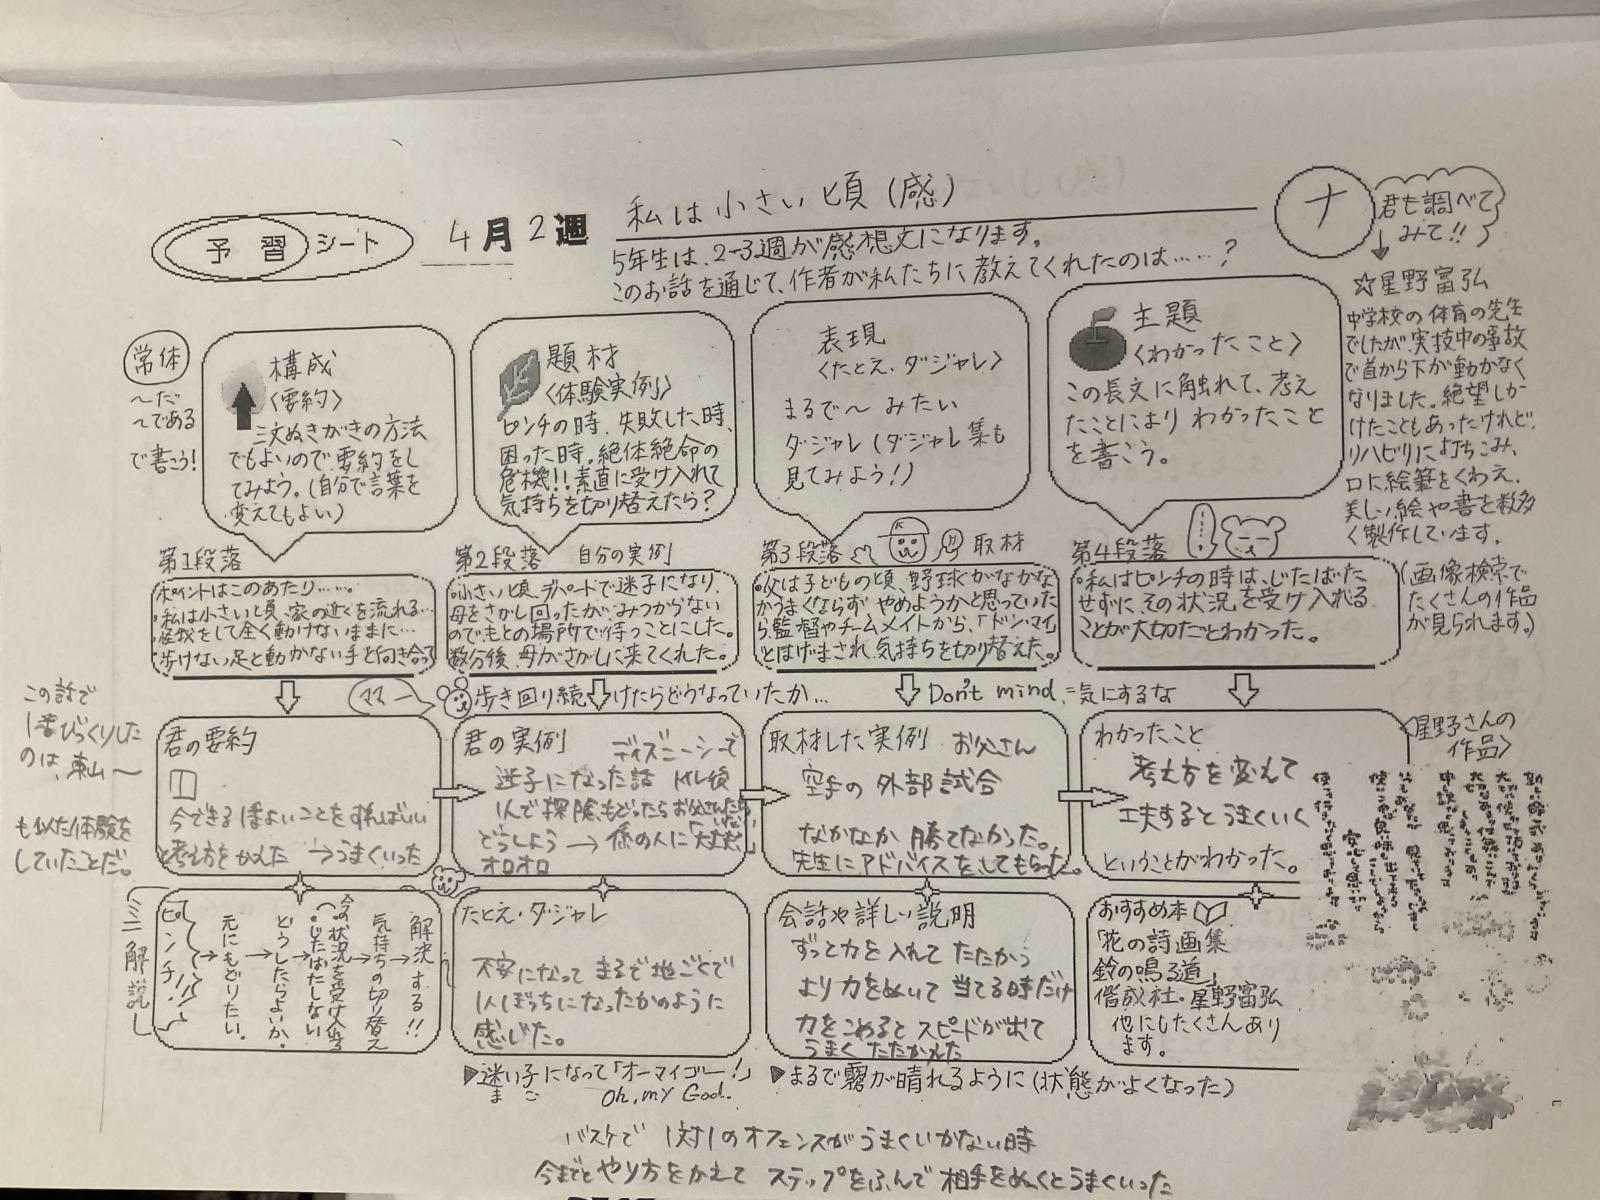 予習シート
4月2週
私は小さい頃(感)
ナ
5年生は、2-3週が感想文になります。
このお話を通じて、作者が私たちに教えてくれたのは……?
君も調べて
みて!!
☆星野富弘
中学校の体育の先生
でしたが、実技中の事故
で首から下が動かなく
なりました。絶望しか
けたこともあったけれど、
リハビリに打ちこみ、
口に絵筆をくわえ、
美しい絵や書を数多
く製作しています。
(画像検索で
たくさんの作品
が見られます。)
常体
〜だ
〜である
で書こう!
構成
〈要約〉
三文ぬきがきの方法
でもよいので要約をし
てみよう。(自分で言葉を
変えてもよい)
題材
〈体験実例〉
ピンチの時、失敗した時、
困った時。絶体絶命の
危機!!素直に受け入れて
気持ちを切り替えたら?
表現
〈たとえ、ダジャレ〉
まるで〜みたい
ダジャレ(ダジャレ集も
見てみよう!)
主題
〈わかったこと〉
この長文に触れて、考え
たことによりわかったこと
を書こう。
第1段落
ポイントはこのあたり……
・私は小さい頃、家の近くを流れる…
・怪我をして全く動けないままに…
・歩けない足と動かない手と向き合って
第2段落 自分の実例
・小さい頃、デパートで迷子になり、
母をさがし回ったが、みつからない
のでもとの場所で待つことにした。
数分後、母がさがしに来てくれた。
第3段落 取材
・父は子どもの頃、野球がなかな
かうまくならず、やめようかと思っていた
ら、監督やチームメイトから、「ドン・マイ」
とはげまされ、気持ちを切り替えた。
第4段落
・私はピンチの時は、じたばた
せずに、その状況を受け入れる
ことが大切だとわかった。
ママー
歩き回り続けたらどうなっていたか…
Don't mind =気にするな
この話で
1番びっくりした
のは、東山〜
も似た体験を
していたことだ。
君の要約
今できるほよいことをすればいい
と考え方をかえた →うまくいった
君の実例 ディズニーシーで
迷子になった話 トイレ後
1人で探険、もどったらお父さんたち
どうしよう → 係の人に「大丈夫」
オロオロ
取材した実例 お父さん
空手の外部試合
なかなか勝てなかった。
先生にアドバイスをしてもらった。
わかったこと
考え方を変えて
工夫するとうまくいく
ということがわかった。
〈星野さんの
作品〉
ミニ解説
ピンチ!
→元にもどりたい。
→どうしたらよいか。
→今の状況を受け入れる
(じたばたしない)
→気持ちの切り替え
→解決する!!
たとえ・ダジャレ
不安になってまるで地ごくで
1人ぼっちになったかのように
感じた。
会話や詳しい説明
ずっと力を入れてたたかう
より力をぬいて当てる時だけ
力をこめるとスピードが出て
うまくたたかえた
おすすめ本
「花の詩画集
鈴の鳴る道」
偕成社・星野富弘
他にもたくさんあり
ます。
▶迷い子になって「オーマイゴー!」
ま ご Oh, my God.
▶まるで霧が晴れるように(状態がよくなった)
バスケで1対1のオフェンスがうまくいかない時
今までとやり方をかえてステップをふんで相手をぬくとうまくいった